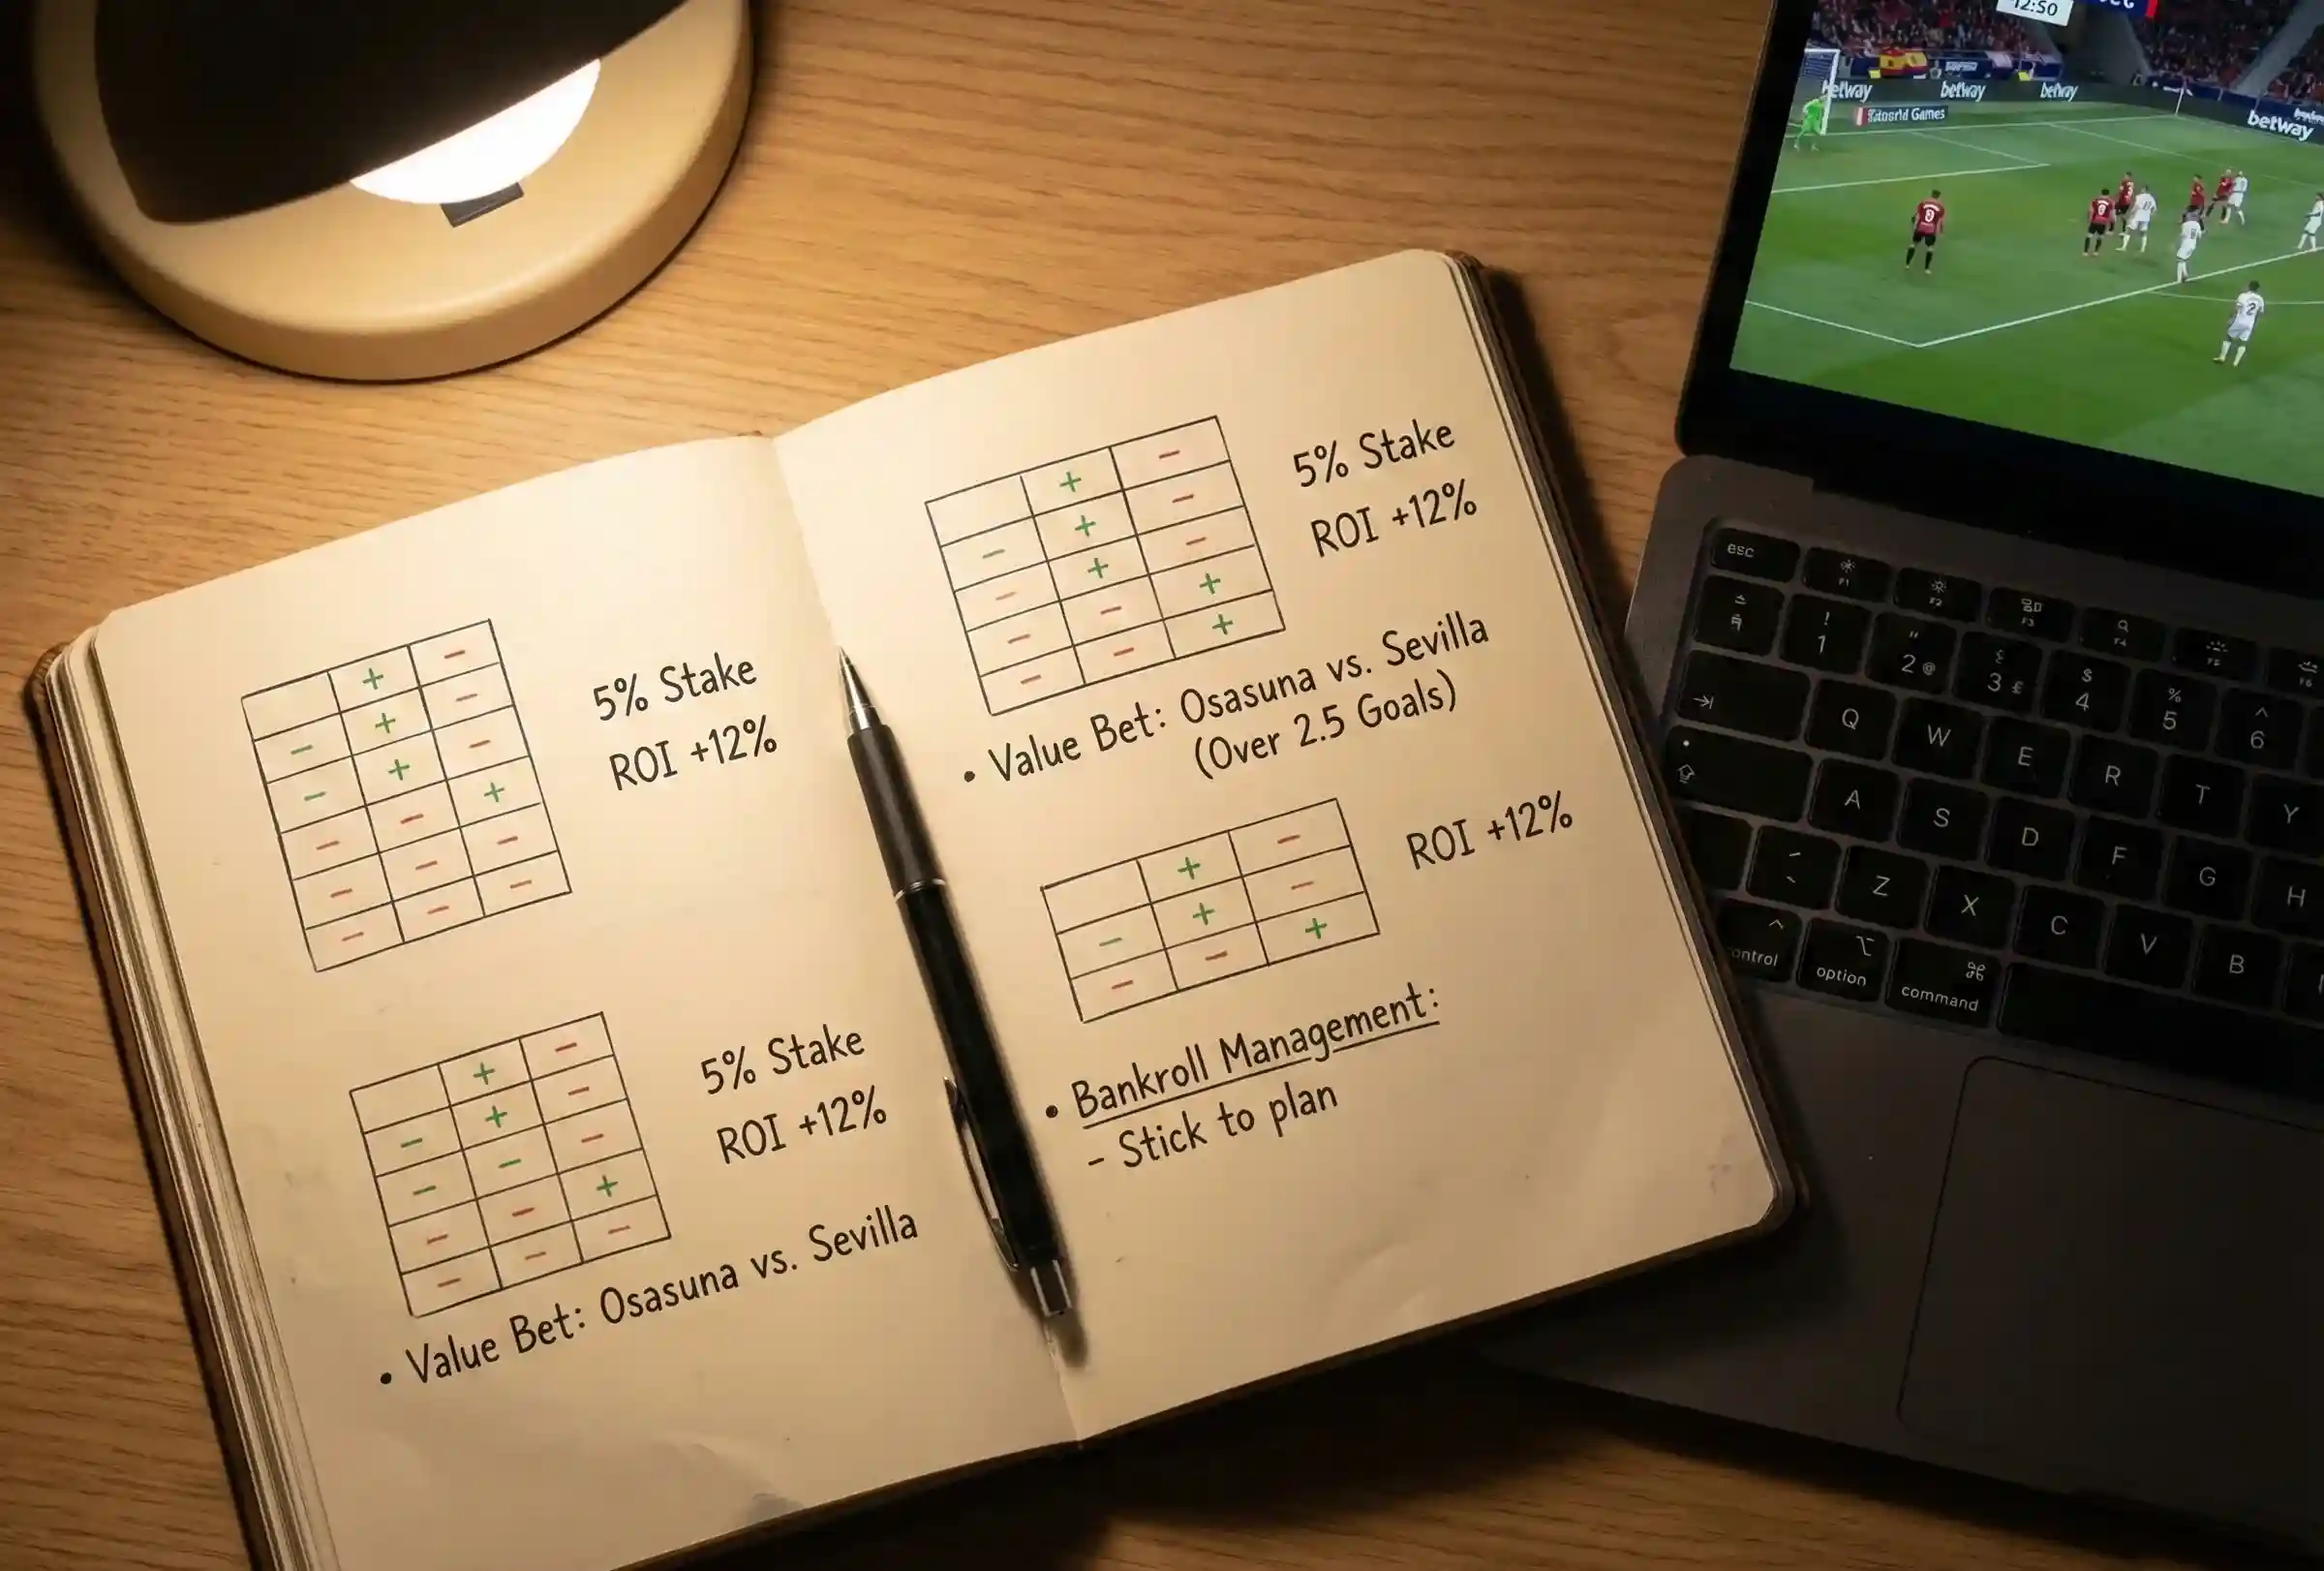 5% Stake
ROI +12%
5% Stake
ROI +12%
• Value Bet: Osasuna vs. Sevilla
5% Stake
ROI +12%
• Value Bet: Osasuna vs. Sevilla
(Over 2.5 Goals)
ROI +12%
• Bankroll Management:
- Stick to plan
12:50
betway betway betway
betway
esc
F1 F2 F3 F4 F5 F6
! " £ $ % ^
1 2 @ 3 £ 4 5 6
Q W E R T Y
A S D F G H
Z X C V B
option command